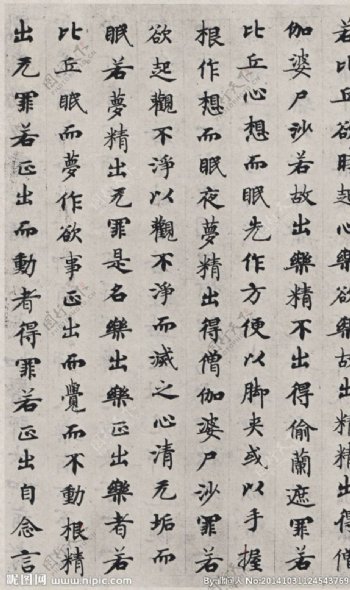 若比丘欲時起心樂欲樂故出精精出得僧
伽婆尸沙若故出樂精不出得偷蘭遮罪若
比丘心想而眠先作方便以脚夾或以手握
根作想而眠夜夢精出得僧伽婆尸沙罪若
欲起觀不淨以觀不淨而滅之心清无垢而
眠若夢精出无罪是名樂出樂正出樂者若
比丘眠而夢作欲事正出而覺而不動根精
出无罪若正出而動者得罪若正出自念言
昵图网 www.nipic.com